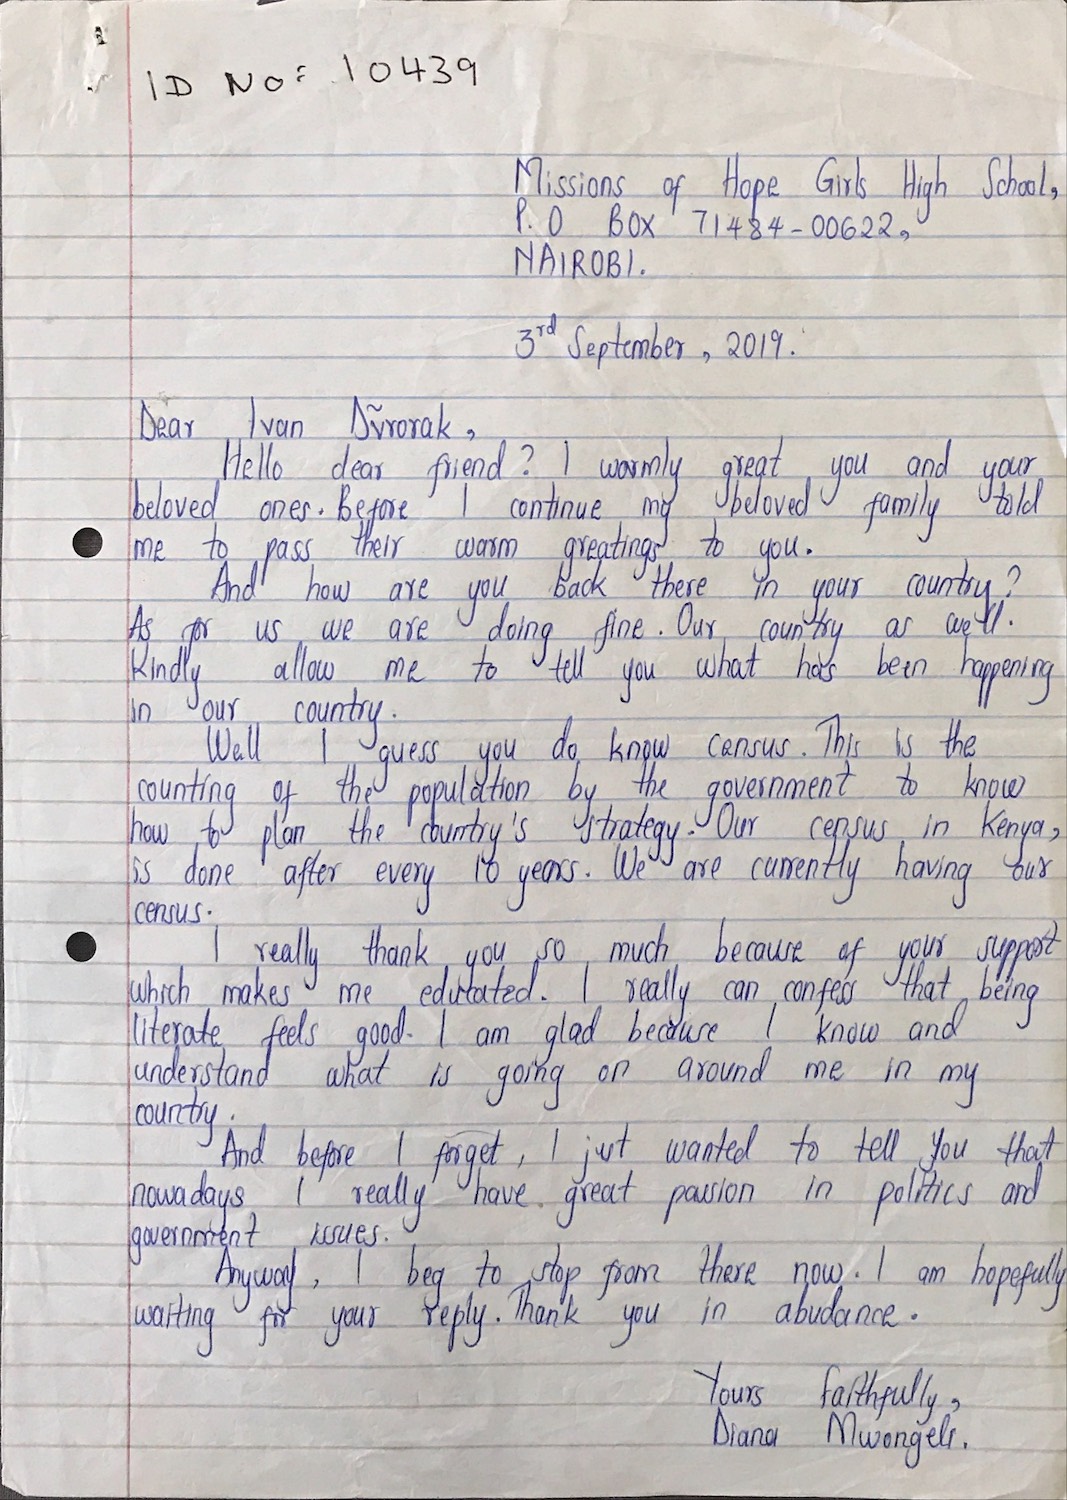 ID No: 10439
Missions of Hope Girls High School,
P.O BOX 71484-00622,
NAIROBI.
3rd September, 2019.
Dear Ivan Dṽrorak,
Hello dear friend? I warmly great you and your
beloved ones. Before I continue my beloved family told
me to pass their warm greatings to you.
And how are you back there in your country?
As for us we are doing fine. Our country as well.
Kindly allow me to tell you what has been happening
in our country.
Well I guess you do know census. This is the
counting of the population by the government to know
how to plan the country's strategy. Our census in Kenya,
is done after every 10 years. We are currently having our
census.
I really thank you so much because of your support
which makes me edutated. I really can confess that being
literate feels good. I am glad because I know and
understand what is going on around me in my
country.
And before I forget, I just wanted to tell you that
nowadays I really have great passion in politics and
government issues.
Anyway, I beg to stop from there now. I am hopefully
waiting for your reply. Thank you in abudance.
Yours faithfully,
Diana Mwongeli.